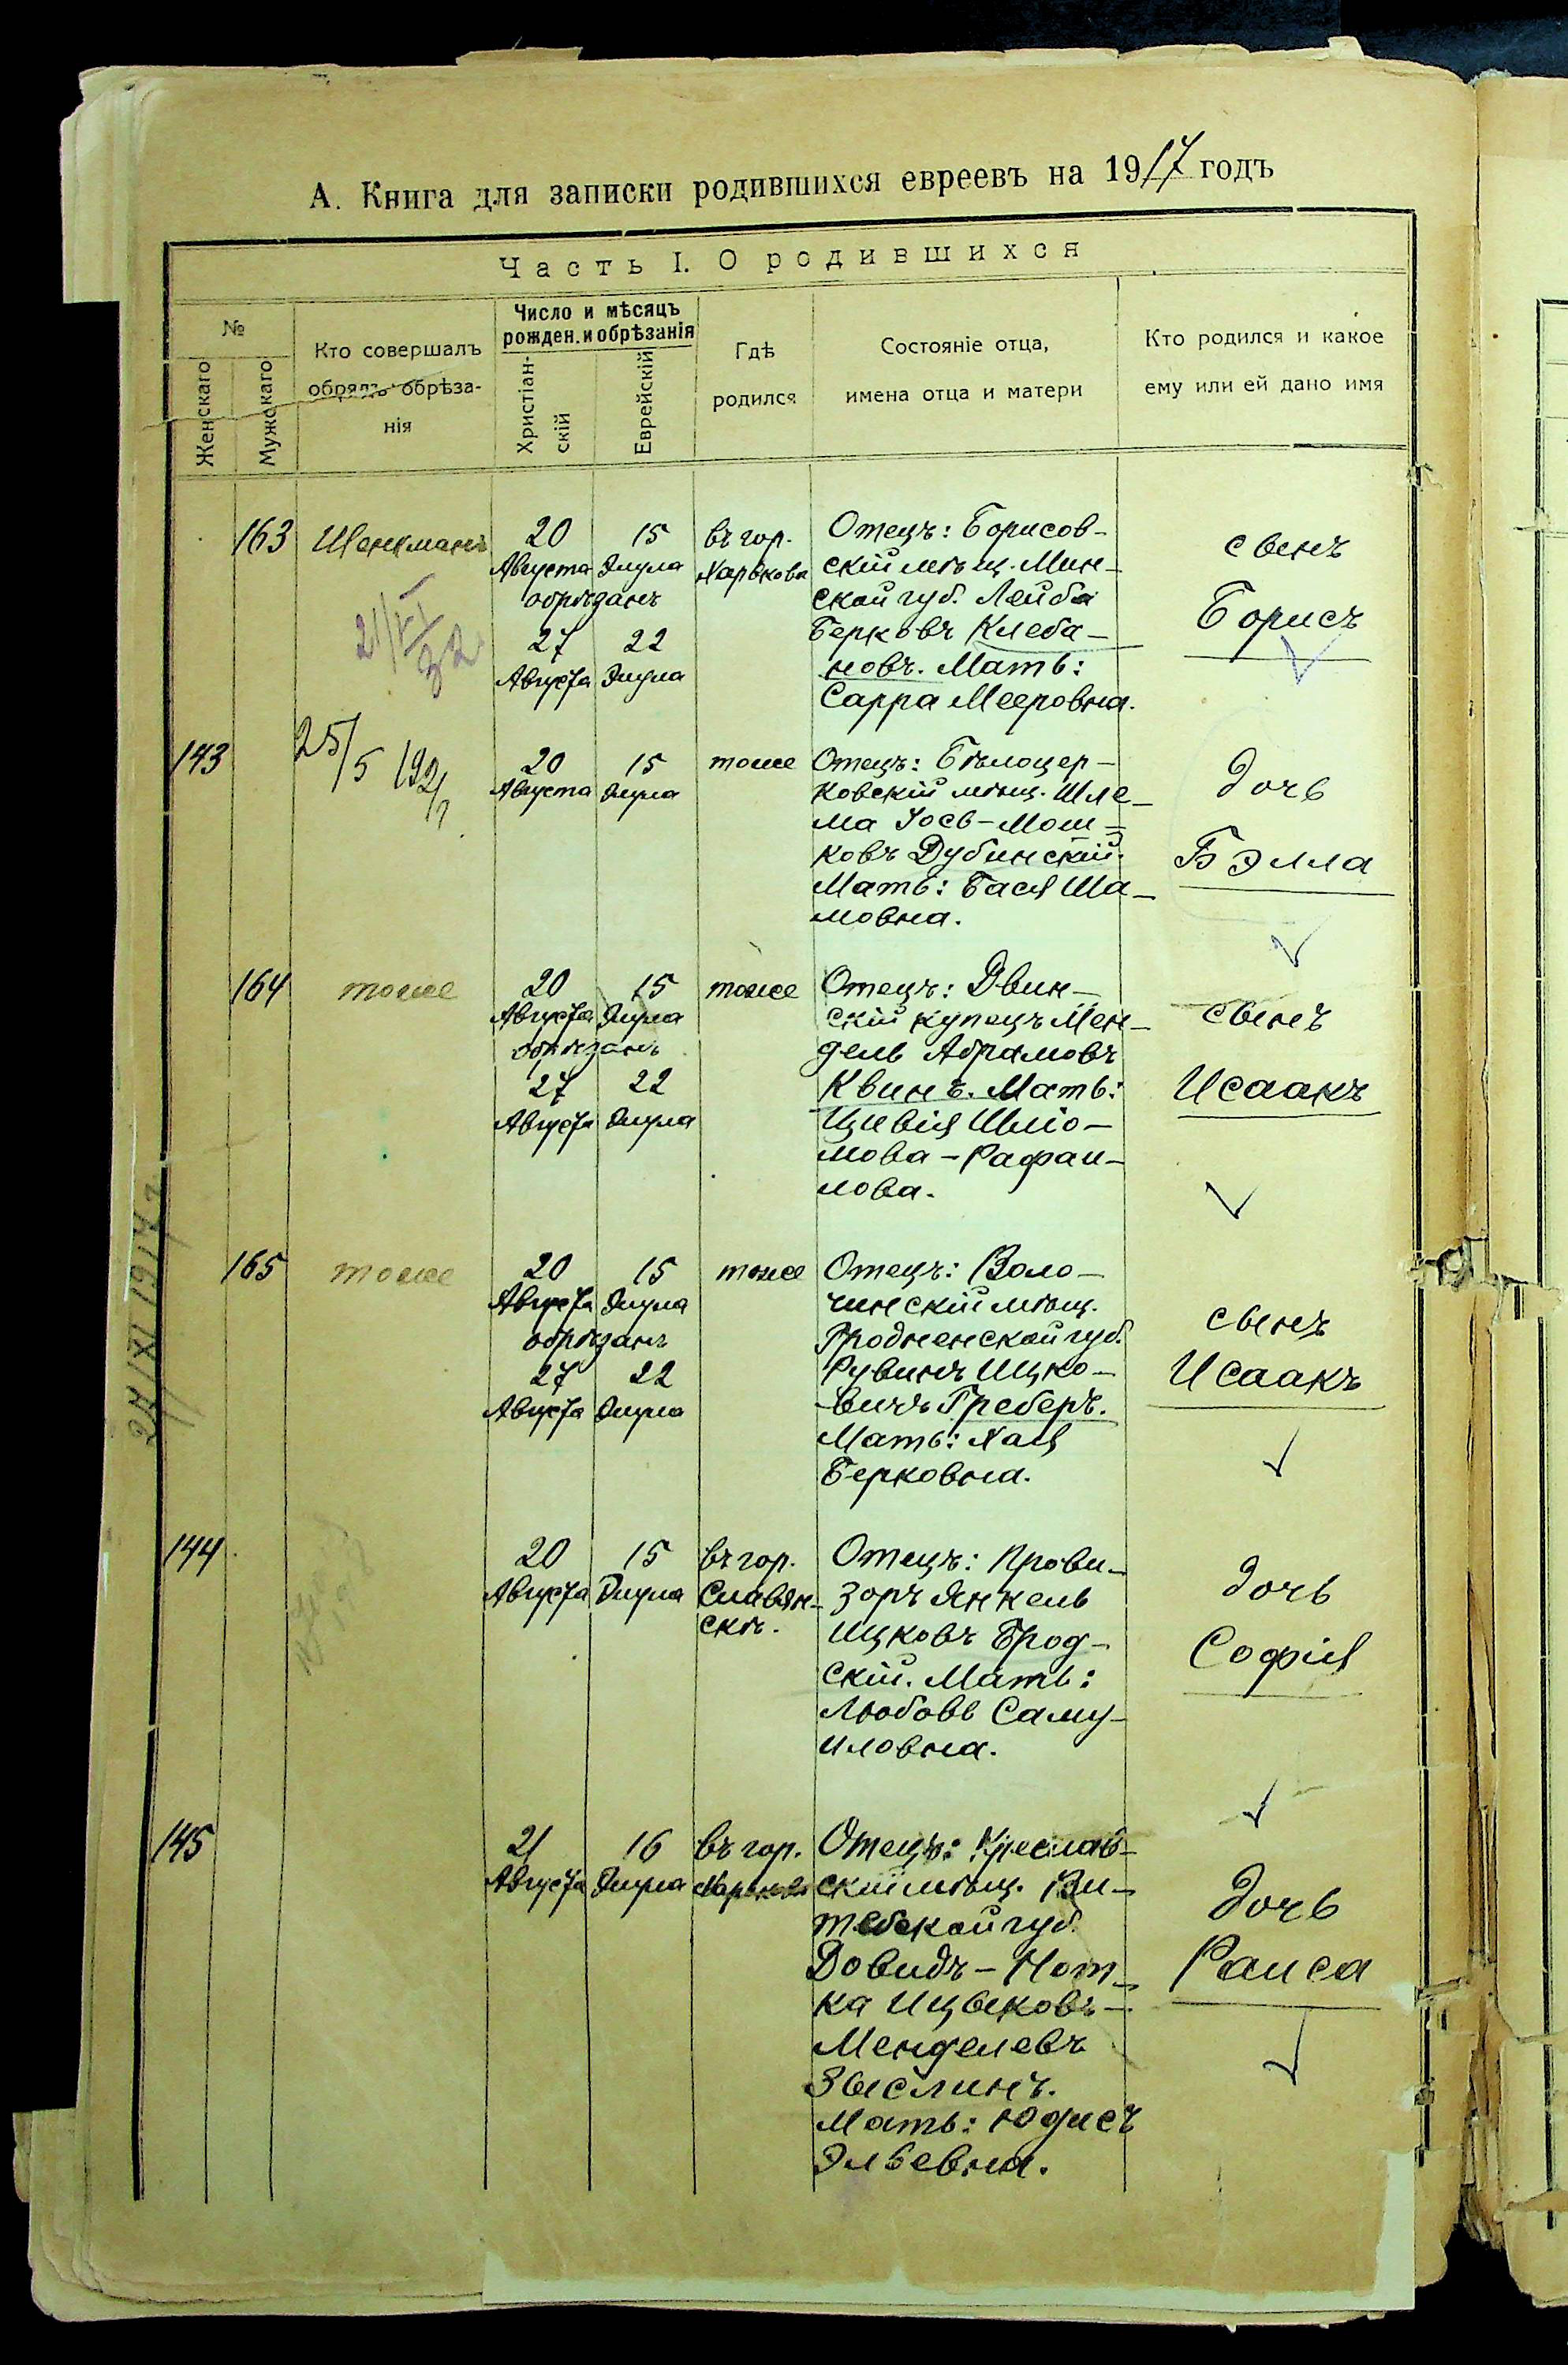 А. Книга для записки родившихся евреевъ на 1917 годъ
Часть I. О родившихся
№
Женскаго
Мужскаго
Кто совершалъ
обрядъ обрѣза-
нія
Число и мѣсяцъ
рожден. и обрѣзанія
Христіан-
скій
Еврейскій
Гдѣ
родился
Состояніе отца,
имена отца и матери
Кто родился и какое
ему или ей дано имя
163
Шенкманъ
21/VI
32
20
Августа
15
Элула
обрѣзанъ
27
Августа
22
Элула
въ гор.
Харькова
Отецъ: Борисов-
скій мѣщ. Мин-
ской губ. Лейба
Берковъ Клеба-
новъ. Мать:
Сарра Мееровна.
сынъ
Борисъ
143
25/5 192
20
Августа
15
Элула
тоже
Отецъ: Бѣлоцер-
ковскій мѣщ. Шле-
ма Іось-Мош-
ковъ Дубинскій.
Мать: Бася Ша-
мовна.
дочь
Бэлла
164
тоже
20
Августа
15
Элула
обрѣзанъ
27
Августа
22
Элула
тоже
Отецъ: Двин-
скій купецъ Мен-
дель Абрамовъ
Квинъ. Мать:
Цивія Шліо-
мова-Рафаи-
лова.
сынъ
Исаакъ
165
тоже
20
Августа
15
Элула
обрѣзанъ
27
Августа
22
Элула
тоже
Отецъ: Воло-
чинскій мѣщ.
Гродненской губ.
Рувинъ Ицко-
вичъ Греберъ.
Мать: Хая
Берковна.
сынъ
Исаакъ
144
20
Августа
15
Элула
въ гор.
Славян-
скѣ.
Отецъ: Прови-
зоръ Янкель
Ицковъ Брод-
скій. Мать:
Любовь Саму-
иловна.
дочь
Софія
145
21
Августа
16
Элула
въ гор.
Харькова
Отецъ: Креслав-
скій мѣщ. Ви-
тебской губ.
Довидъ-Нот-
ка Ицыковъ-
Менделевъ
Зыслинъ.
Мать: Юдисъ
Эльевна.
дочь
Раиса